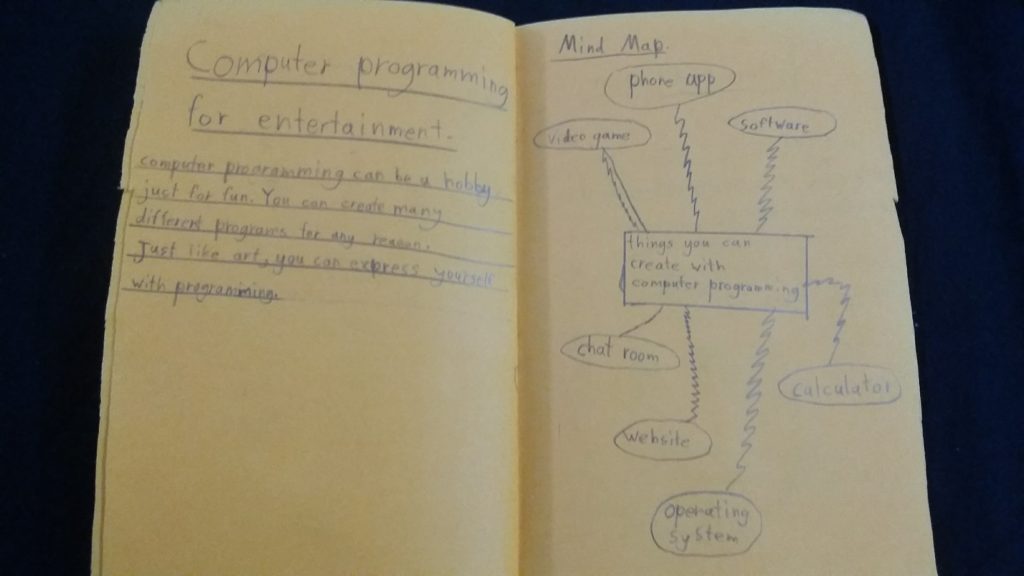 Computer programming
for entertainment.
computer programming can be a hobby
just for fun. You can create many
different programs for any reason.
Just like art, you can express yourself
with programming.
Mind Map.
phone app
video game
software
things you can
create with
computer programming
chat room
calculator
website
operating
system